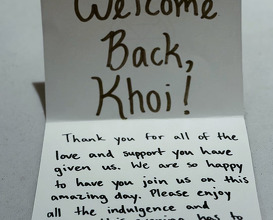 Welcome
Back,
Khoi!
Thank you for all of the
love and support you have
given us. We are so happy
to have you join us on this
amazing day. Please enjoy
all the indulgence and
this evening has to